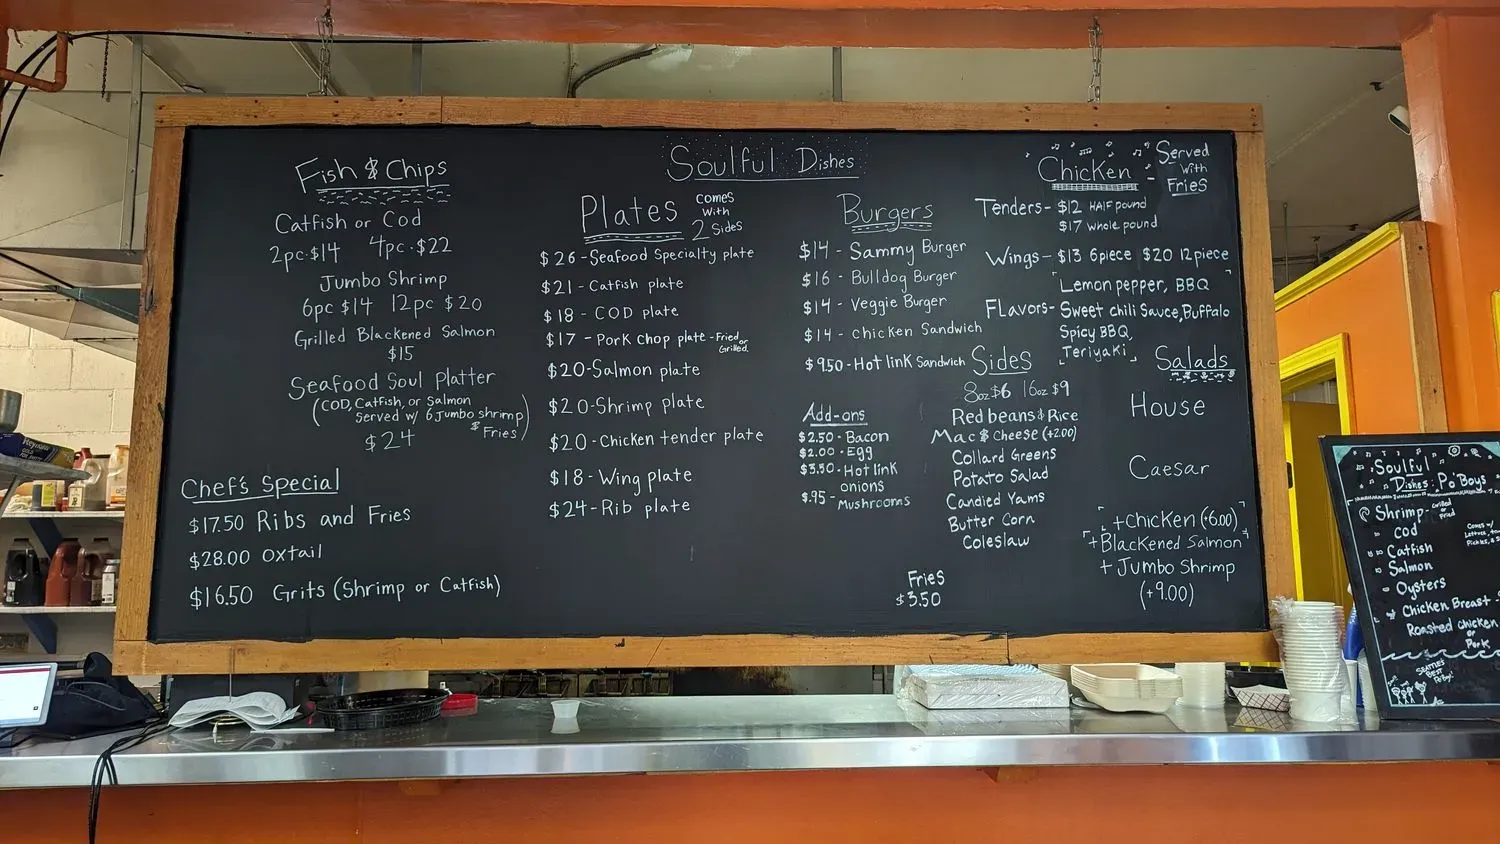 Soulful Dishes
Fish & Chips
Catfish or Cod
2pc·$14 4pc·$22
Jumbo Shrimp
6pc $14 12pc $20
Grilled Blackened Salmon
$15
Seafood Soul Platter
(COD, Catfish, or Salmon
Served w/ 6 Jumbo shrimp
& Fries)
$24
Chef's Special
$17.50 Ribs and Fries
$28.00 Oxtail
$16.50 Grits (Shrimp or Catfish)
Plates
comes
with
2 Sides
$26-Seafood Specialty plate
$21- Catfish plate
$18 - COD plate
$17 - Pork Chop plate -Fried or Grilled
$20-Salmon plate
$20-Shrimp plate
$20-Chicken tender plate
$18-Wing plate
$24-Rib plate
Burgers
$14 - Sammy Burger
$16 - Bulldog Burger
$14 - Veggie Burger
$14 - chicken Sandwich
$9.50-Hot link Sandwich
Add-ons
$2.50-Bacon
$2.00-Egg
$3.50-Hot link
onions
$.95- Mushrooms
Chicken -
Served
with
Fries
Tenders- $12 HAlF pound
$17 whole pound
Wings- $13 6piece $20 12piece
Flavors-
Lemon pepper, BBQ
Sweet chili Sauce, Buffalo
Spicy BBQ,
Teriyaki
Sides
8oz $6 16oz $9
Red beans & Rice
Mac & Cheese (+2.00)
Collard Greens
Potato Salad
Candied Yams
Butter Corn
Coleslaw
Fries
$3.50
Salads
House
Caesar
+Chicken (+6.00)
+Blackened Salmon
+Jumbo Shrimp
(+9.00)
Soulful
Dishes: Po'Boys
Shrimp- Grilled or Fried
Cod
Catfish
Salmon
Oysters
Chicken Breast -
Roasted Chicken
or
Pork
Comes w/
Seattle's
Best
Po'boy!
Reynolds